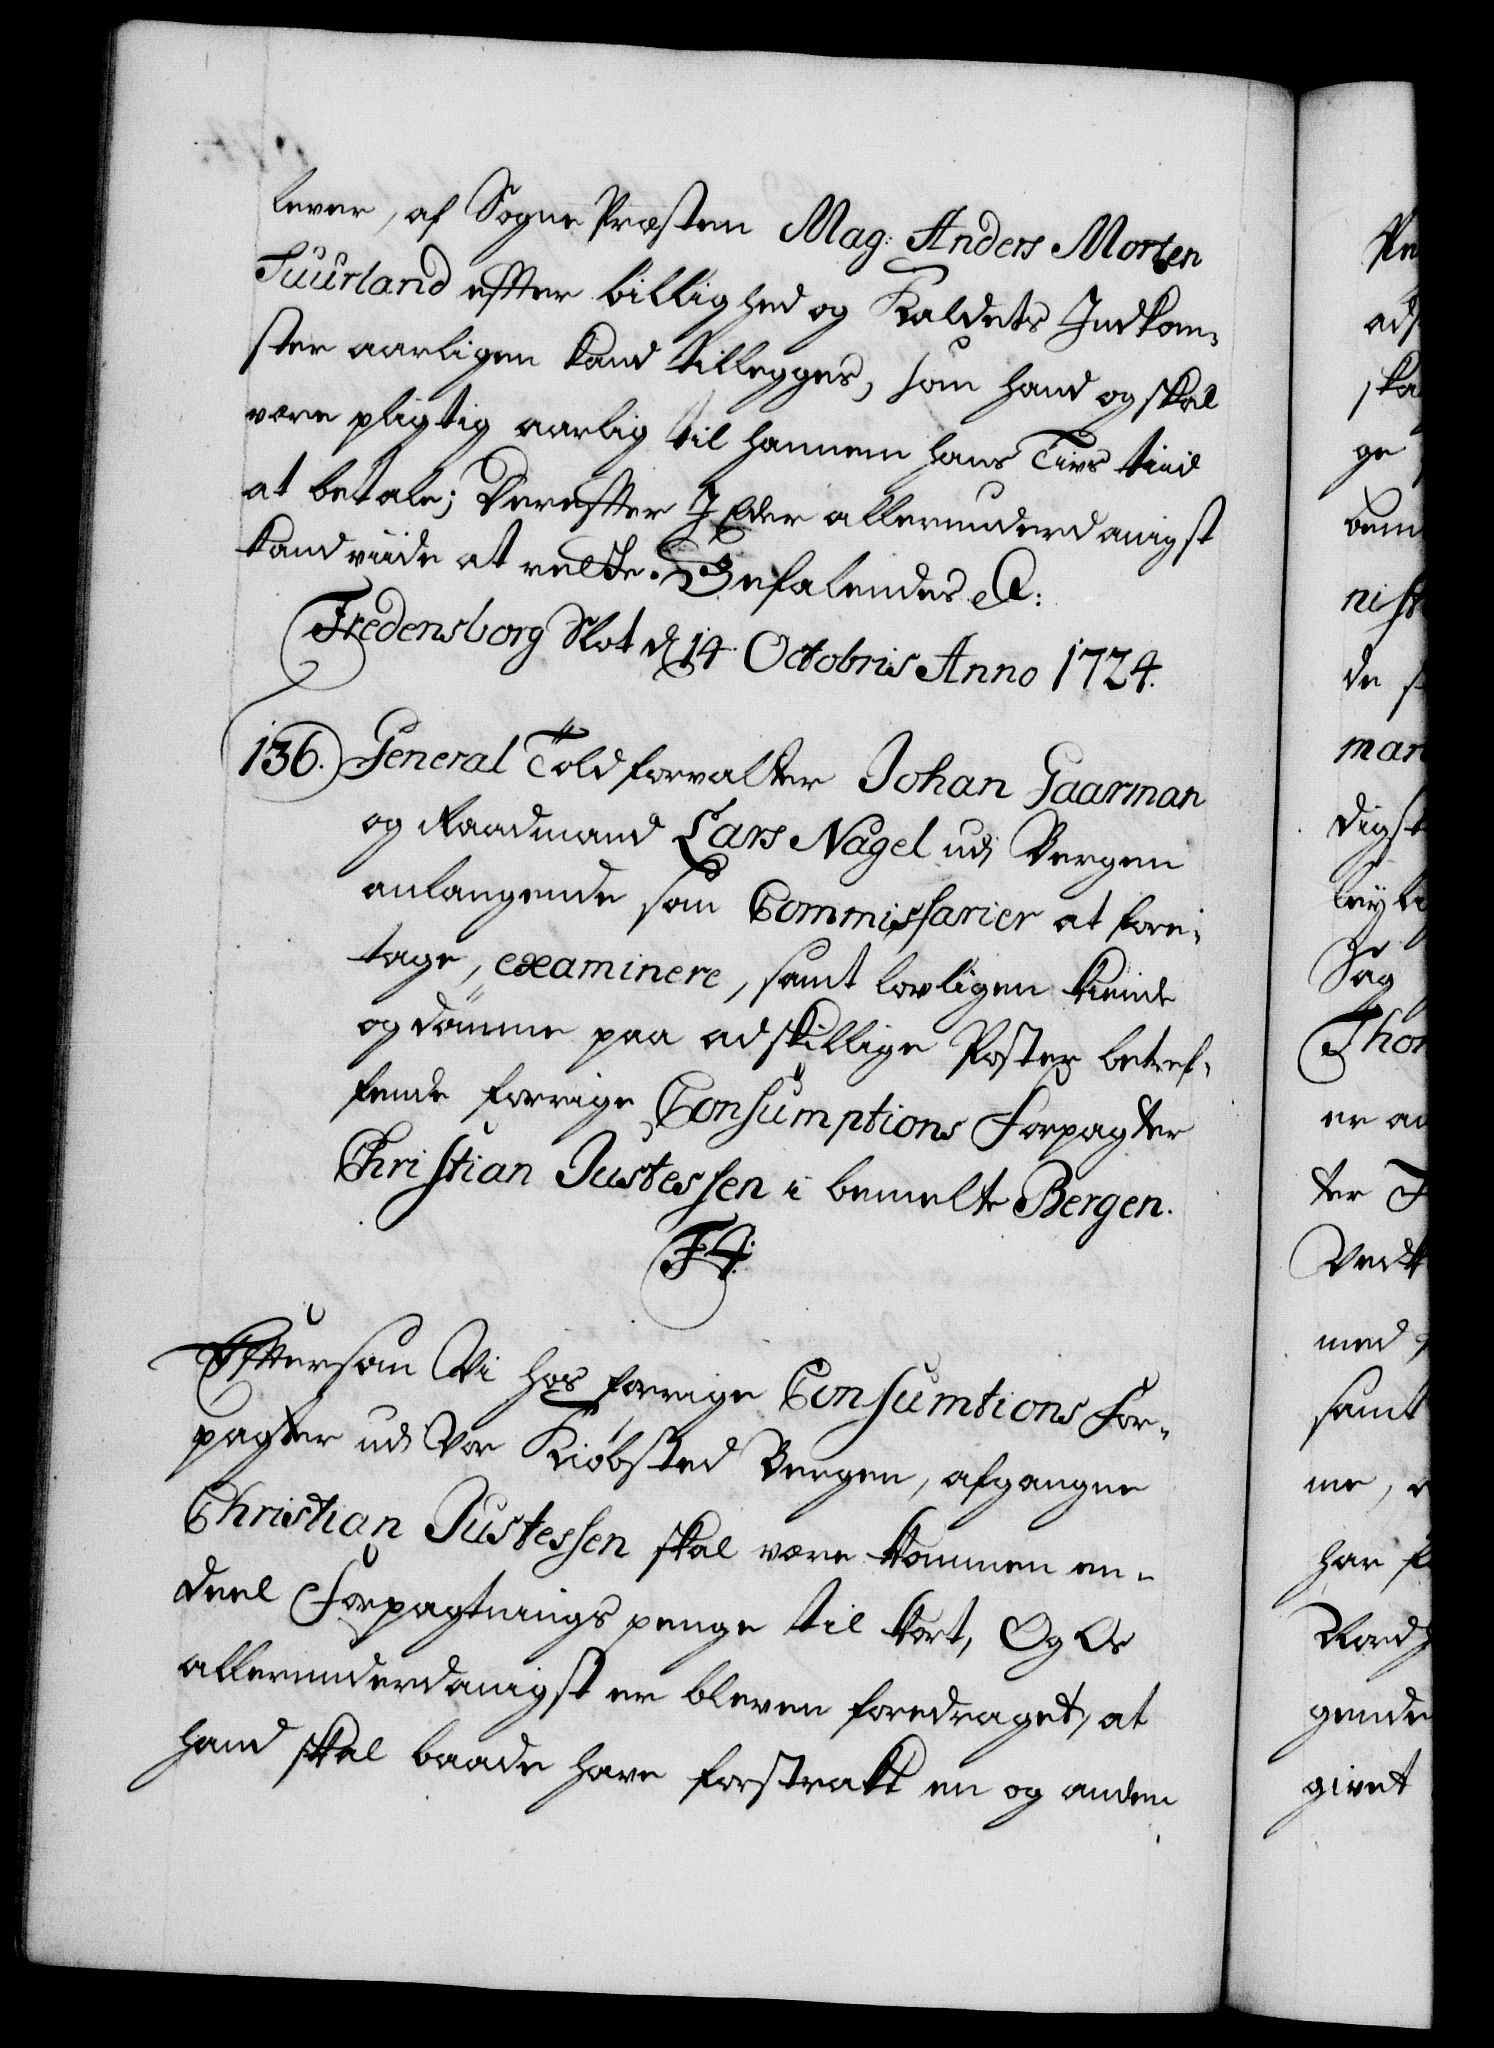 lever, af Sogne Præsten Mag: Anders Morten
Suurland efter billighed og Kaldets Indkom-
ster aarligen kand tillegges, som hand og skal
være pligtig aarlig til hannem hans Livs tiid
at betale; Derefter I Eder allerunderdanigst
kand viide at rette. Befalendes &:
Fredensborg Slot d 14. Octobris Anno 1724.
136. General Toldforvalter Johan Gaarman
og Raadmand Lars Nagel udi Bergen
anlangende som Commissarier at fore-
tage, examinere, samt lovligen kiende
og dømme paa adskillige Poster betref-
fende forrige Consumptions Forpagter
Christian Justessen i bemelte Bergen.
F4:
Eftersom Vi hos forrige Consumtions For-
pagter udi Vor Kiøbsted Bergen, afgangne
Christian Justessen skal være kommen en-
deel Forpagtnings penge til kort, Og Os
allerunderdanigst er bleven foredraget, at
hand skal baade have forstrakt en og anden
ge
de
med
samt
me,
har
gende
givet